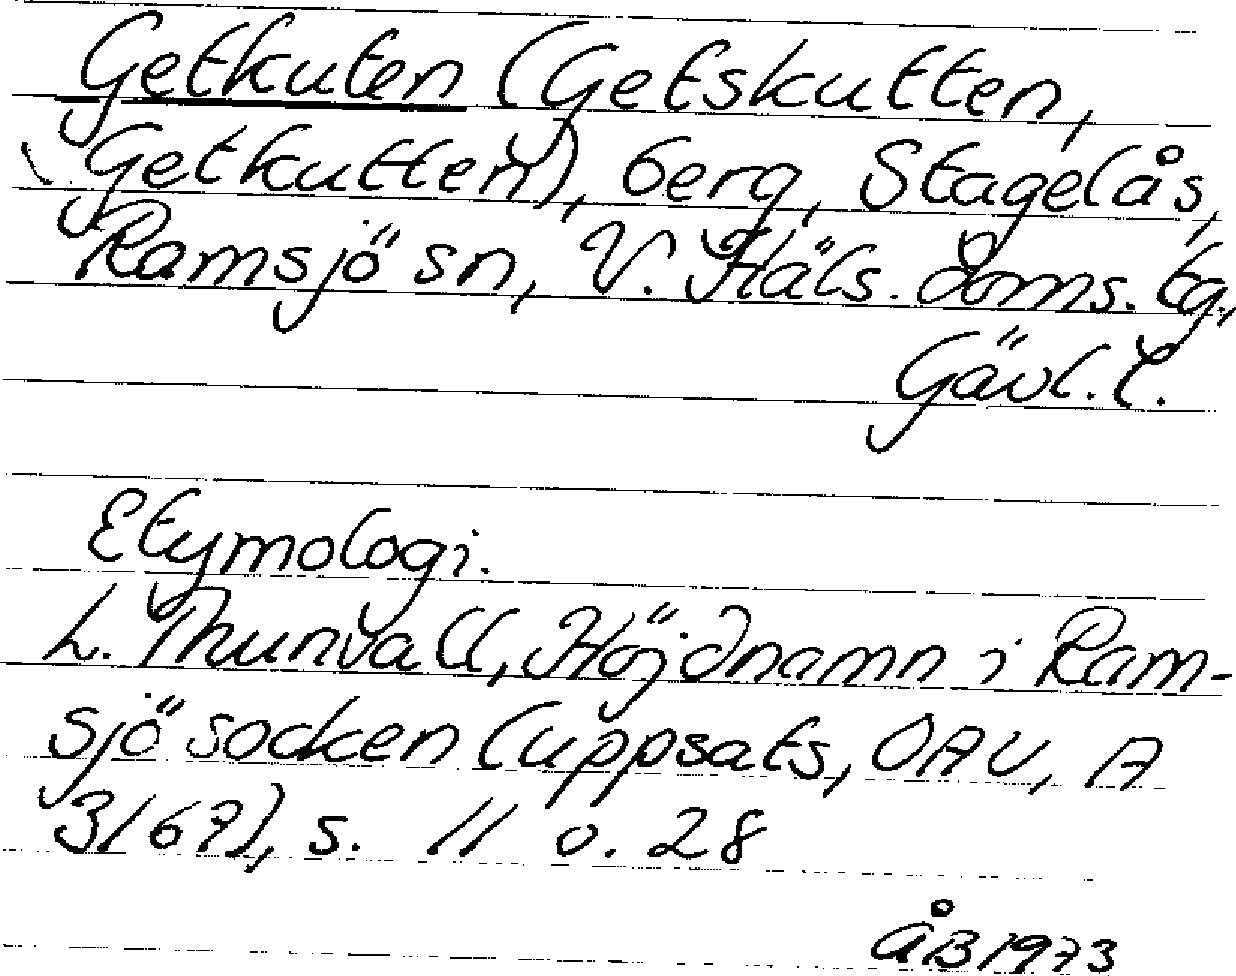 Getkuten (Getskutten,
Getkutten), berg, Stagelås,
Ramsjö sn, V. Häls. doms. tg,
Gävl. l.
Etymologi.
L. Thunvall, Höjdnamn i Ram-
sjö socken (uppsats, OAU, A
3/67), s. 11 o. 28
ÅB 1973